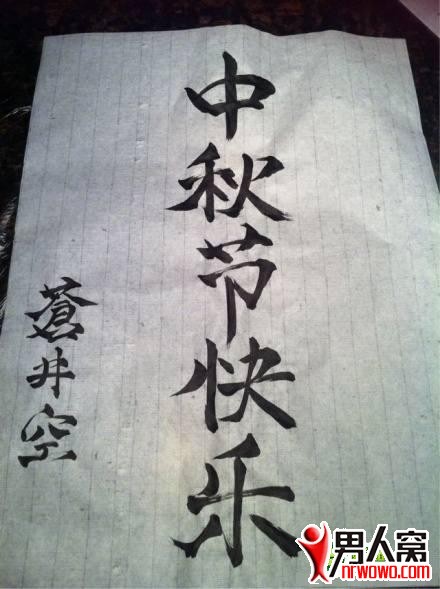 中秋节快乐
蒼井空
男人窝
nrwowo.com